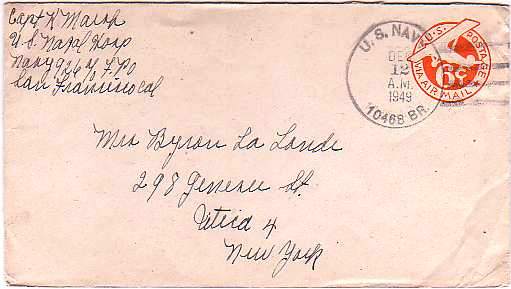 Capt K Marsh
U.S. Naval Hosp
Navy 926 % F.P.O
San Francisco Cal
U.S. NAVY
DEC
12
A.M.
1949
10468 BR.
U.S. POSTAGE
6¢
VIA AIR MAIL
Mrs Byron La Londe
298 Genesee St.
Utica 4
New York